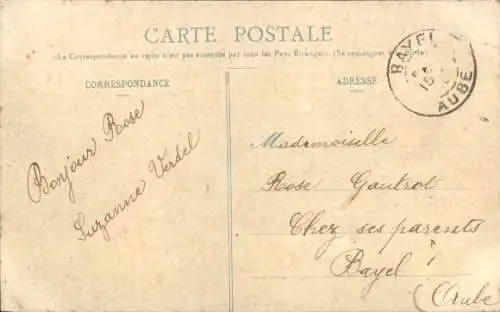 CARTE POSTALE
(La Correspondance au recto n'est pas acceptée par tous les Pays Étrangers. (Se renseigner à la Poste)
CORRESPONDANCE
ADRESSE
BAYEL
15
AUBE
Bonjour Rose
Suzanne Verdel
Mademoiselle
Rose Gautrot
Chez ses parents
Bayel
(Aube